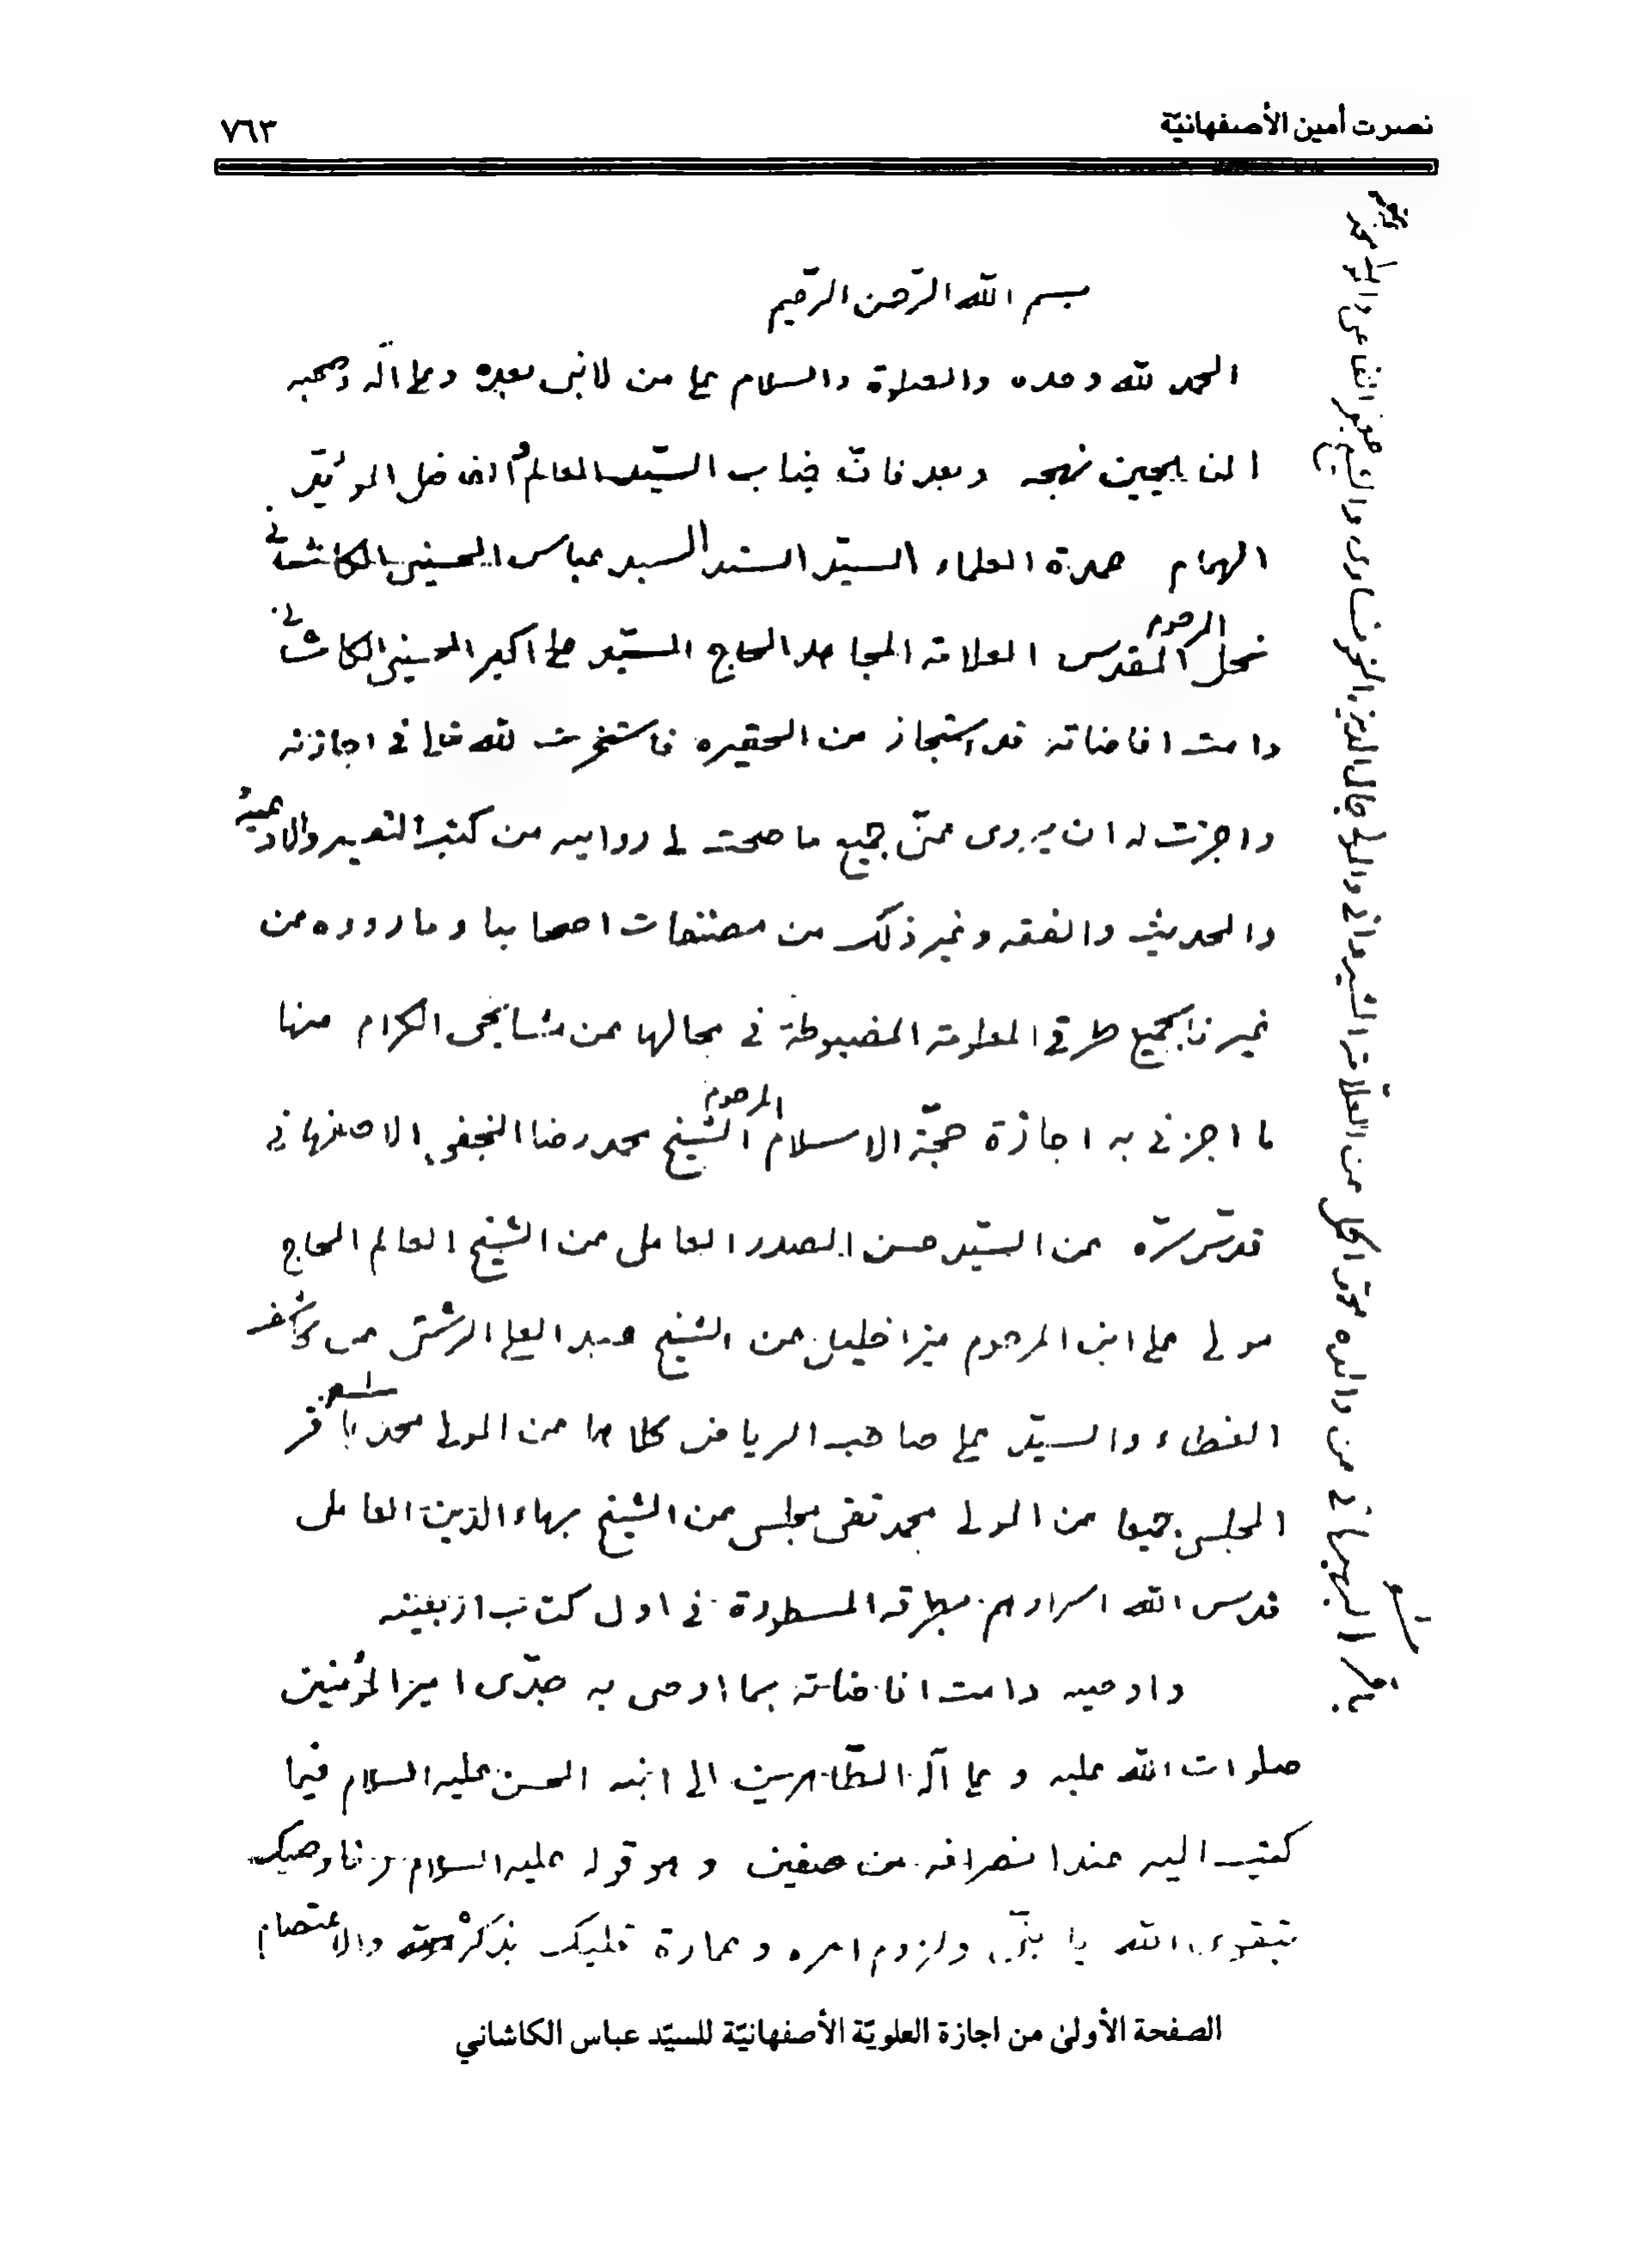 نصرت أمين الأصفهانيّة
٧٦٣
بسم الله الرّحمن الرّحيم
الحمد لله وحده والصلوة والسلام على من لا نبى بعده وعلى اله وصحبه
الناهجين نهجه وبعد فانّ جناب السيّد العالم و الفاضل الموثق
الهمام عمدة العلماء السيّد السند السيد عباس الحسينى الكاشانى
نجل المرحوم المقدس العلامة المجاهد الحاج السيّد على اكبر الحسينى الكاشانى
دامت افاضاته قد استجاز من الحقيره فاستخرت لله تعالى فى اجازته
واجزت له ان يروى عنّى جميع ما صحت لى روايته من كتب التفسير والادعية
والحديث والفقه وغير ذلك من مصنفات اصحابنا وما رووه عن
غيرنا بجميع طرقى المعلومة المضبوطة فى محالها عن مشايخى الكرام منها
ما اجزنى به اجازة حجّة الاسلام المرحوم الشيخ محمد رضا النجفى الاصفهانى
قدّس سرّه عن السيّد حسن الصدر العاملى عن الشيخ العالم الحاج
مولى على ابن المرحوم ميرزا خليل عن الشيخ عبد العلى الرشتى عن كاشف
الغطاء والسيّد على صاحب الرياض كلاهما عن المولى محمد باقر
المجلسى جميعا عن المولى محمد تقى مجلسى عن الشيخ بهاء الدين العاملى
قدس الله اسرارهم بطرقه المسطورة فى اول كتاب اربعينه
واوصيه دامت افاضاته بما اوصى به جدّى امير المؤمنين
صلوات الله عليه وعلى آله الطّاهرين الى ابنه الحسن عليه السلام فيما
كتب اليه عند انصرافه من صفين وهو قوله عليه السلام فاوصيك
بتقوى الله يا بنّى ولزوم امره وعمارة قلبك بذكره والاعتصام
باقر البهبهانى عن والده محمد اكمل عن العلامة الشيروانى والمولى جمال الدين الخونسارى والشيخ جعفر القاضى عن والد
الصفحة الأولىٰ من اجازة العلويّة الأصفهانيّة للسيّد عباس الكاشاني